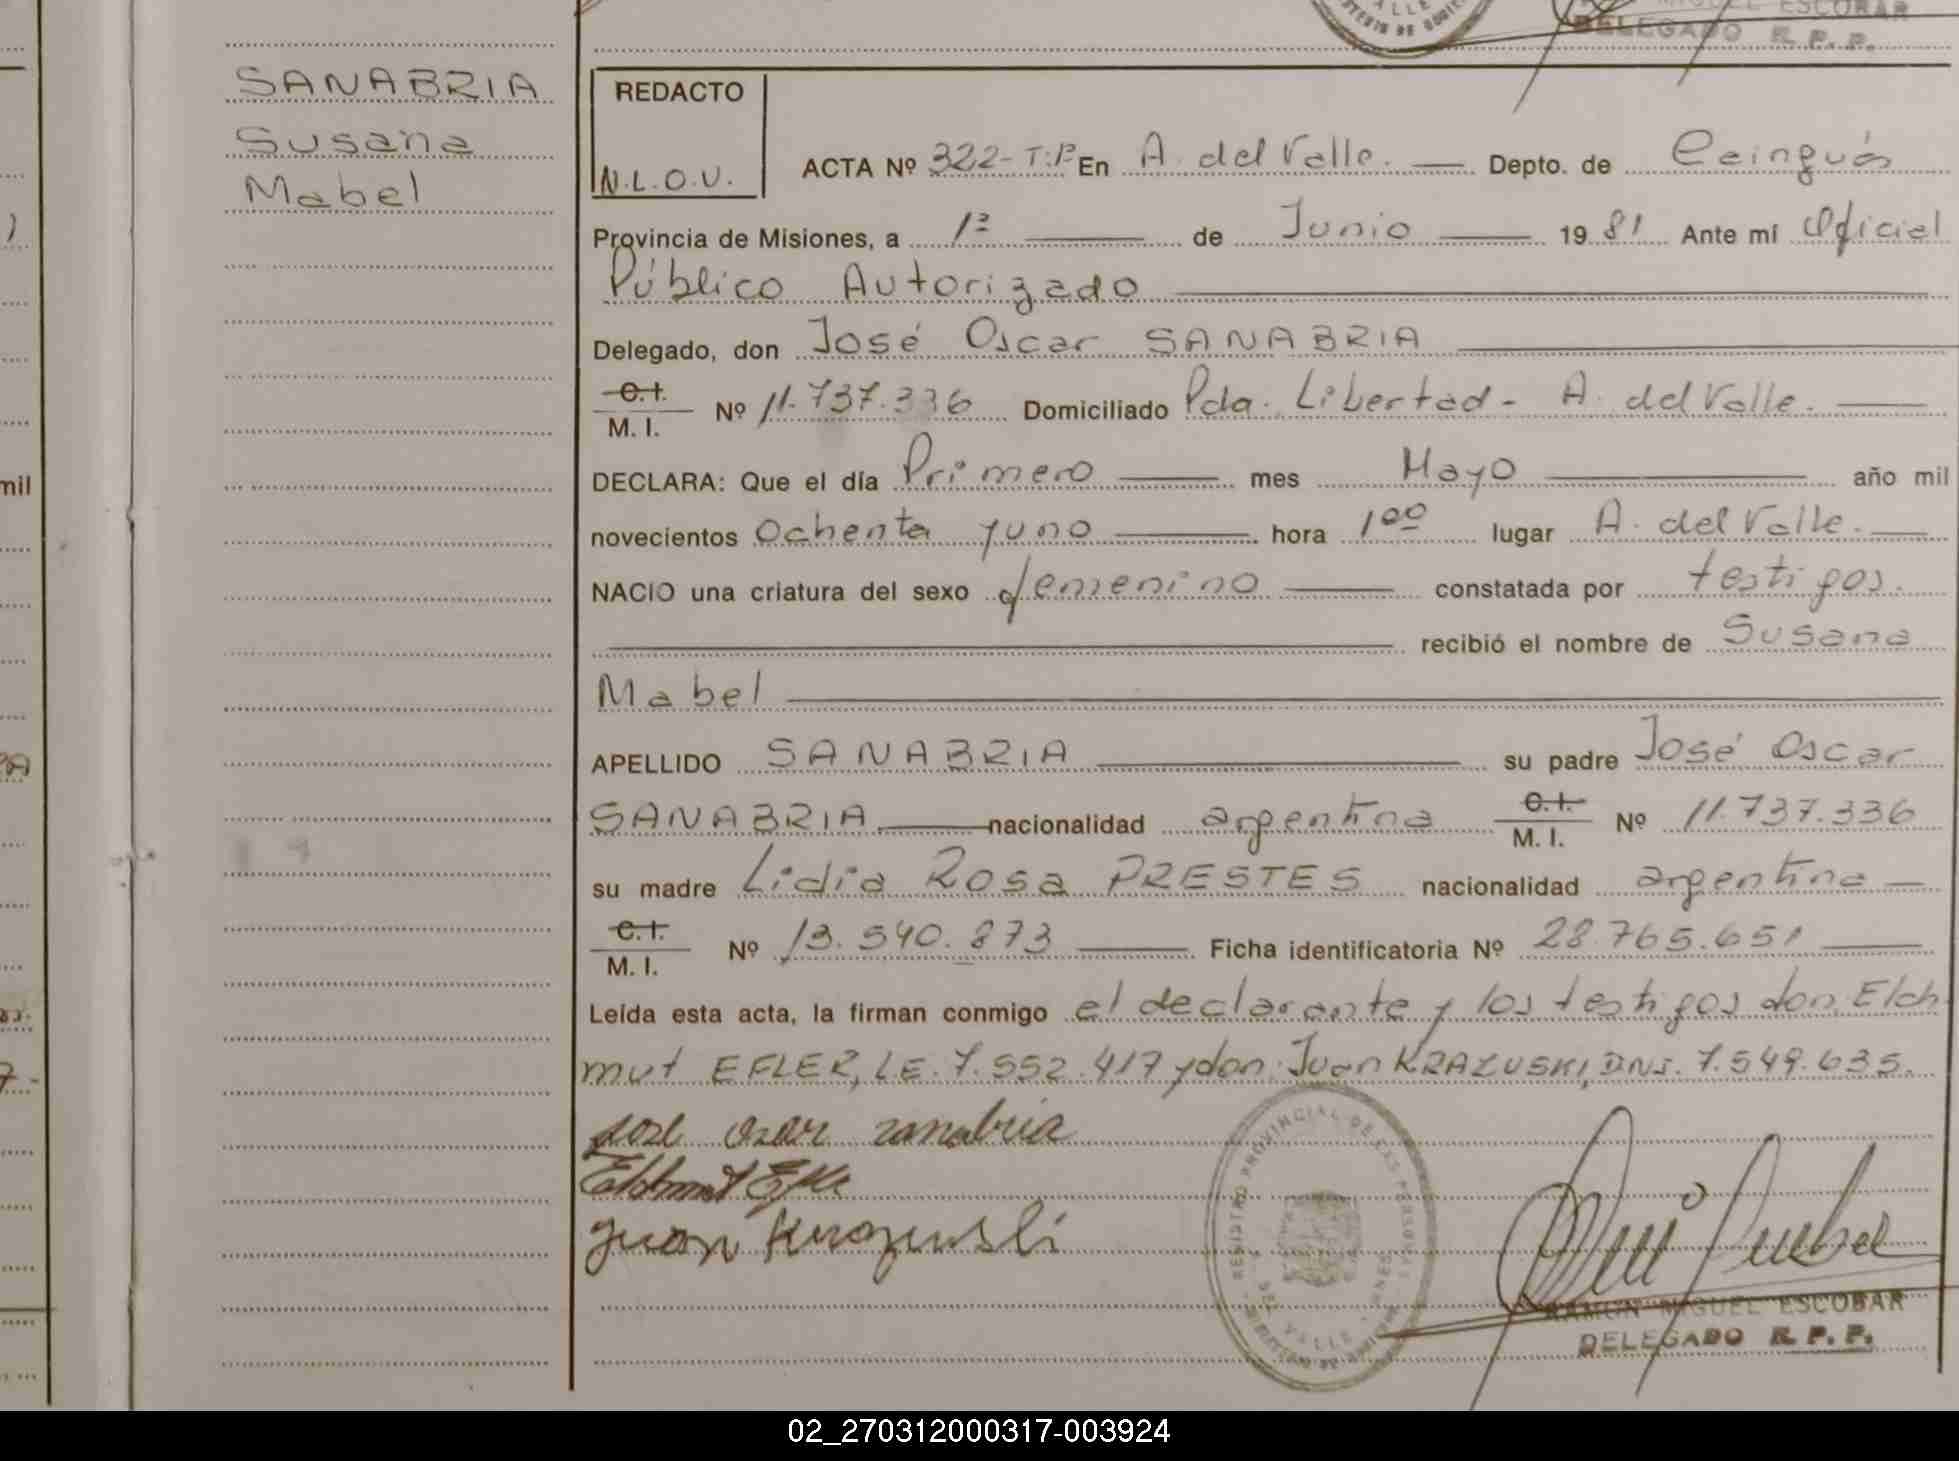 MIGUEL ESCOBAR
DELEGADO R. P. P.
SANABRIA
Susana
Mabel
REDACTO
N.L.O.V.
ACTA Nº 322-T:P En A. del Valle. Depto. de Cainguás
Provincia de Misiones, a 1º de Junio 19 81 Ante mí Oficial
Público Autorizado
Delegado, don José Oscar SANABRIA
C.I.
M. I. Nº 11.737.336 Domiciliado Pda. Libertad - A. del Valle.
DECLARA: Que el día Primero mes Mayo año mil
novecientos Ochenta y uno hora 1⁰⁰ lugar A. del Valle.
NACIO una criatura del sexo femenino constatada por testigos.
recibió el nombre de Susana
Mabel
APELLIDO SANABRIA su padre José Oscar
SANABRIA nacionalidad argentina C.I. M. I. Nº 11.737.336
su madre Lidia Rosa PRESTES nacionalidad argentina
C.I.
M. I. Nº 13.540.873 Ficha identificatoria Nº 28.765.651
Leída esta acta, la firman conmigo el declarante y los testigos don Elch
mut EFLER, LE. 7.552.417 y don Juan KRAZUSKI, DNI. 7.549.635.
jose oscar sanabria
Juan
REGISTRO PROVINCIAL DE LAS PERSONAS
DEL VALLE
RAMON MIGUEL ESCOBAR
DELEGADO R. P. P.
mil
02_270312000317-003924